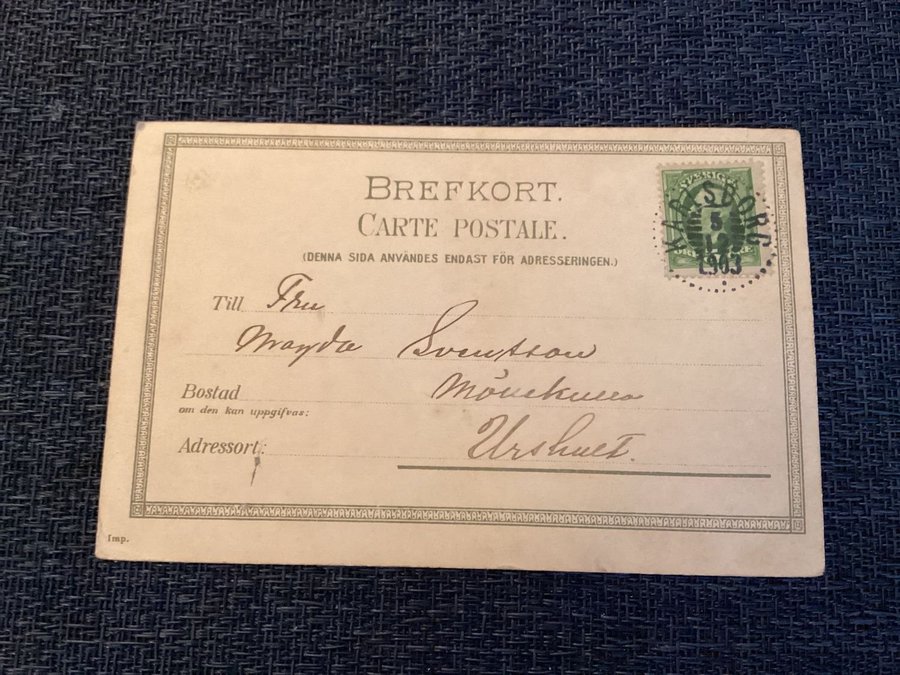 BREFKORT.
CARTE POSTALE.
(DENNA SIDA ANVÄNDES ENDAST FÖR ADRESSERINGEN.)
SVERIGE
KARLSBORG
5
12
1903
Till Fru
Magda Svensson
Bostad Mönekulla
om den kan uppgifvas:
Adressort: Urshult.
Imp.